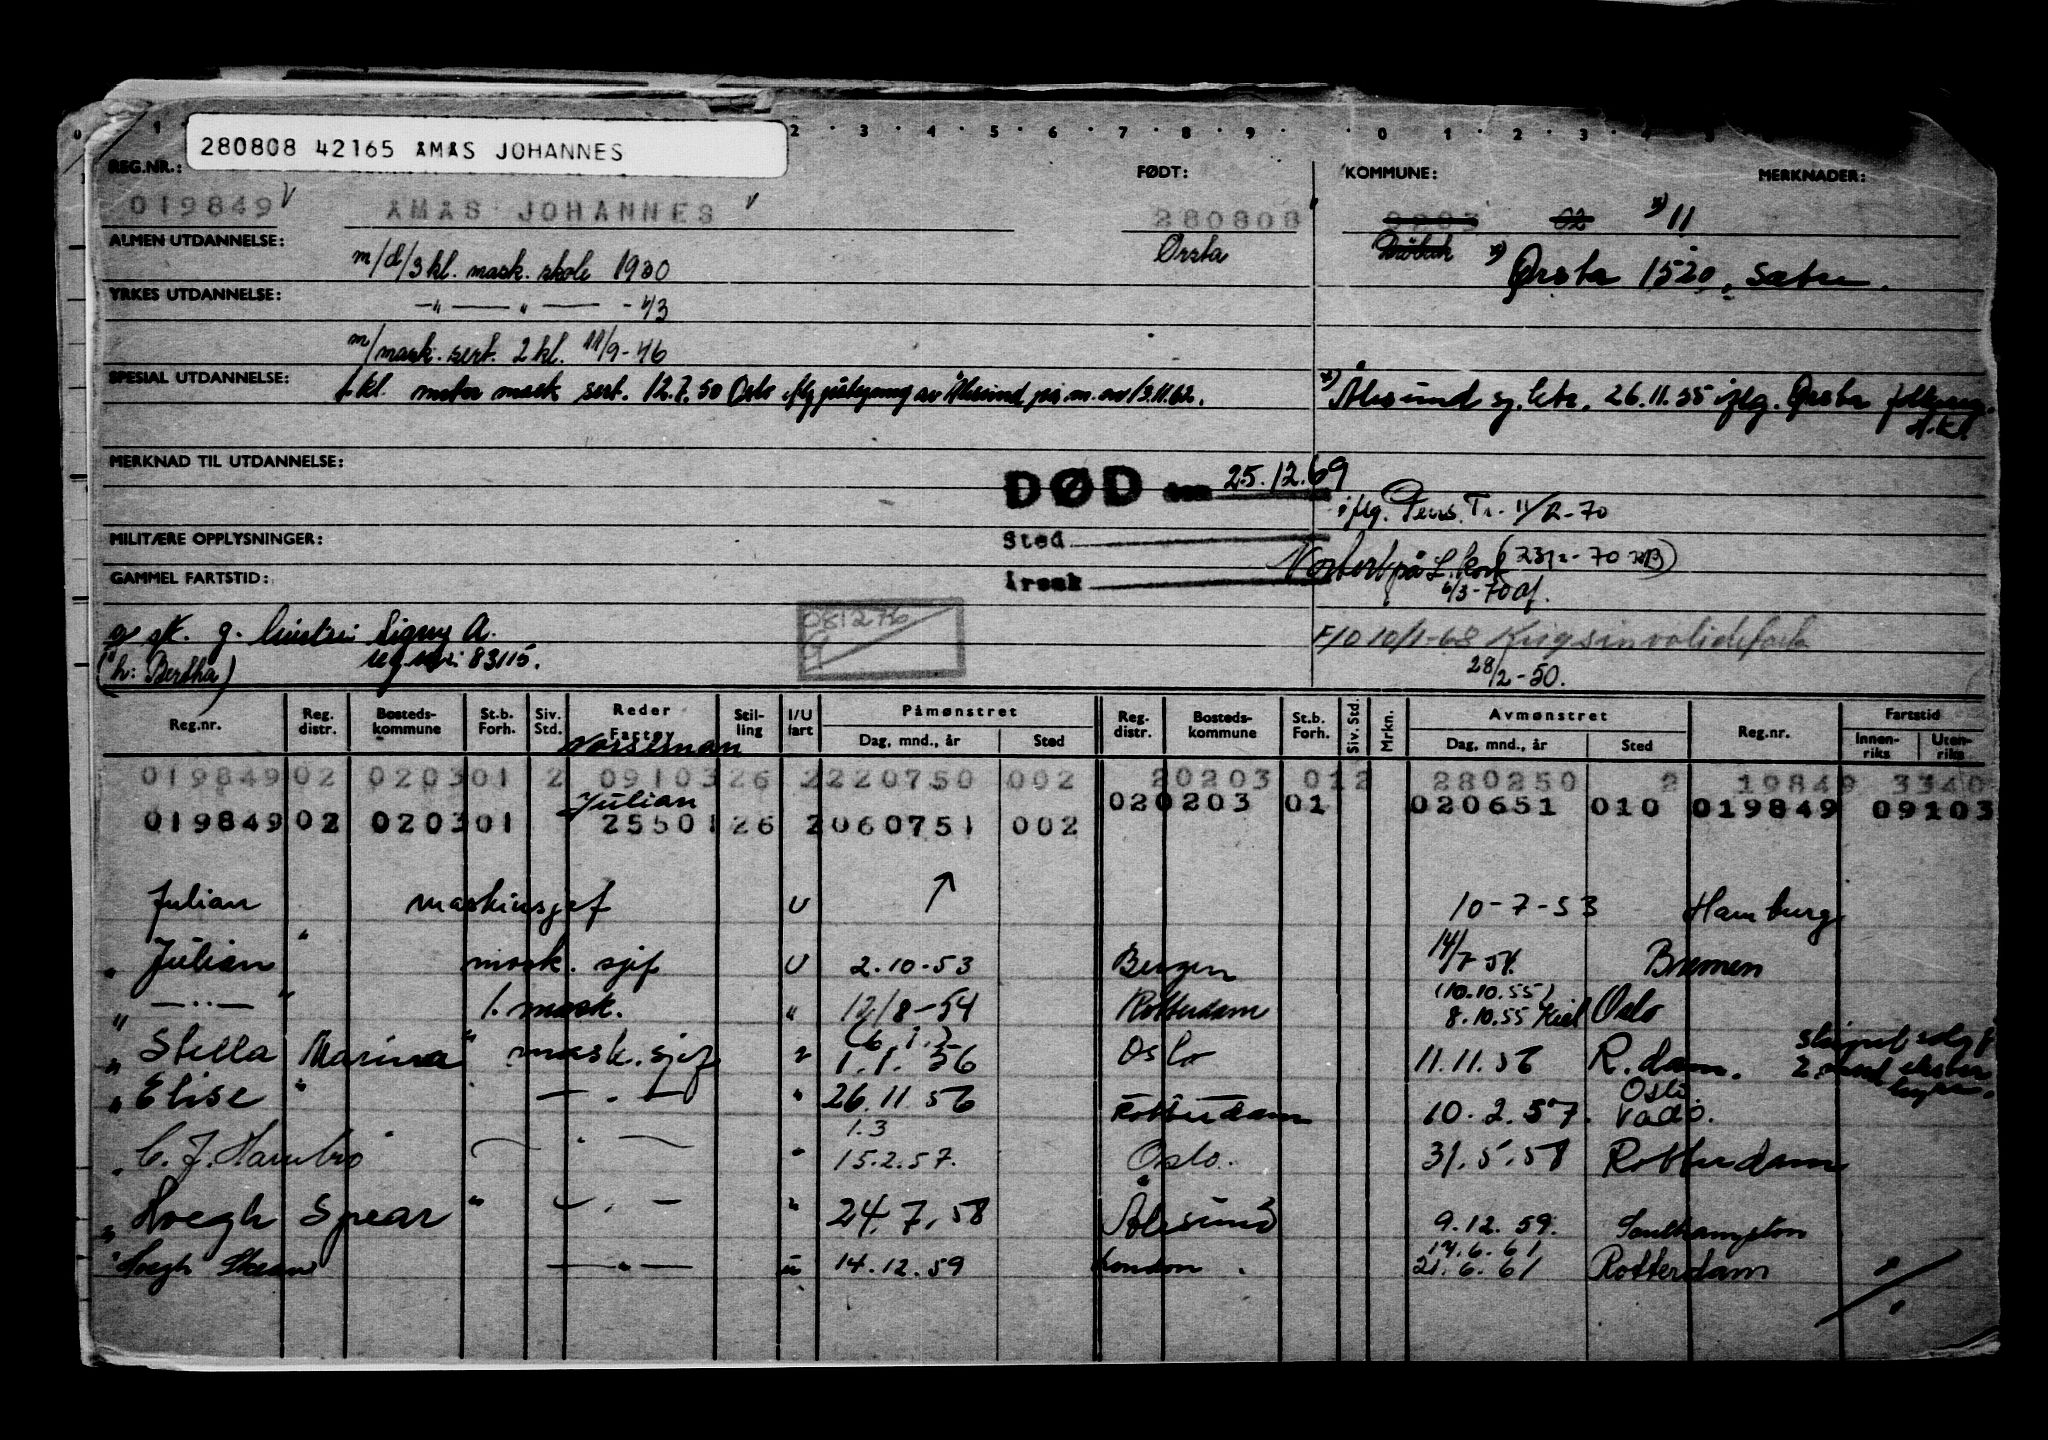 280808 42165 ÅMÅS JOHANNES
REG.NR.: FØDT: KOMMUNE: MERKNADER:
019849 ÅMÅS JOHANNES 280808 0203 02 x) 11
ALMEN UTDANNELSE: m/d/3 kl. mask. skole 1930 Ørsta x) Ørsta 1520, Sætre.
YRKES UTDANNELSE: — " — " — - 4/3
m/mask. sert. 2 kl. 11/9-46
SPESIAL UTDANNELSE: 1. kl. motor mask sert. 12.7.50 Oslo iflg påtegning av Ålesund på m. av 13.11.62. x) Ålesund sj. ktr. 26.11.55 iflg. Ørsta folkereg.
MERKNAD TIL UTDANNELSE:
DØD den 25.12.69
iflg. Pens. Tr. 11/2-70
MILITÆRE OPPLYSNINGER: Sted (23/2-70
GAMMEL FARTSTID: årsak 6/3-70
081276
g. Signy A. F10 10/1-68
(h: Bertha) reg. nr: 83115. 28/2-50.
Reg.nr. Reg. distr. Bosteds-kommune St.b. Forh. Siv. Std. Reder Fartøy Stil-ling I/U fart Påmønstret Dag, mnd., år Sted Reg-distr. Bosteds-kommune St.b. Forh. Siv. Std. Mrkn. Avmønstret Dag, mnd., år Sted Reg.nr. Fartstid Innen-riks Uten-riks
Norseman
019849 02 0203 01 2 09103 26 2 220750 002 20203 01 2 280250 2 19849 3340
Julian 020203 01 020651 010 019849 09103
019849 02 0203 01 25501 26 2 060751 002
Julian maskinsjef U ↑ 10-7-53 Hamburg
" Julian " mask. sjef U 2.10-53 Bergen 14/7 54. Bremen
" — " — " 1. mask. " 12/8-54 Rotterdam (10.10.55) 8.10.55 Kiel Oslo
" Stella Marina " mask. sjef " 1.1.56 Oslo 11.11.56 R.dam.
" Elise " — " — " 26.11 56 Rotterdam 10.2.57. Oslo Vadö.
" C. J. Hambro " — " — " 1.3 15.2.57. Oslo. 31.5.58 Rotterdam
" Hoegh Spear " — " — " 24.7.58 Ålesund 9.12.59. Southampton
" Hoegh — " — " 14.12.59 London. 14.6.61 21.6.61 Rotterdam